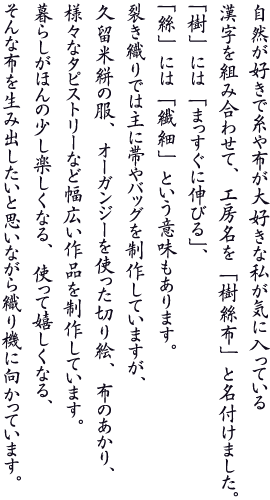 自然が好きで糸や布が大好きな私が気に入っている
漢字を組み合わせて、工房名を「樹絲布」と名付けました。
「樹」には「まっすぐに伸びる」、
「絲」には「繊細」という意味もあります。
裂き織りでは主に帯やバッグを制作していますが、
久留米絣の服、オーガンジーを使った切り絵、布のあかり、
様々なタピストリーなど幅広い作品を制作しています。
暮らしがほんの少し楽しくなる、使って嬉しくなる、
そんな布を生み出したいと思いながら織り機に向かっています。